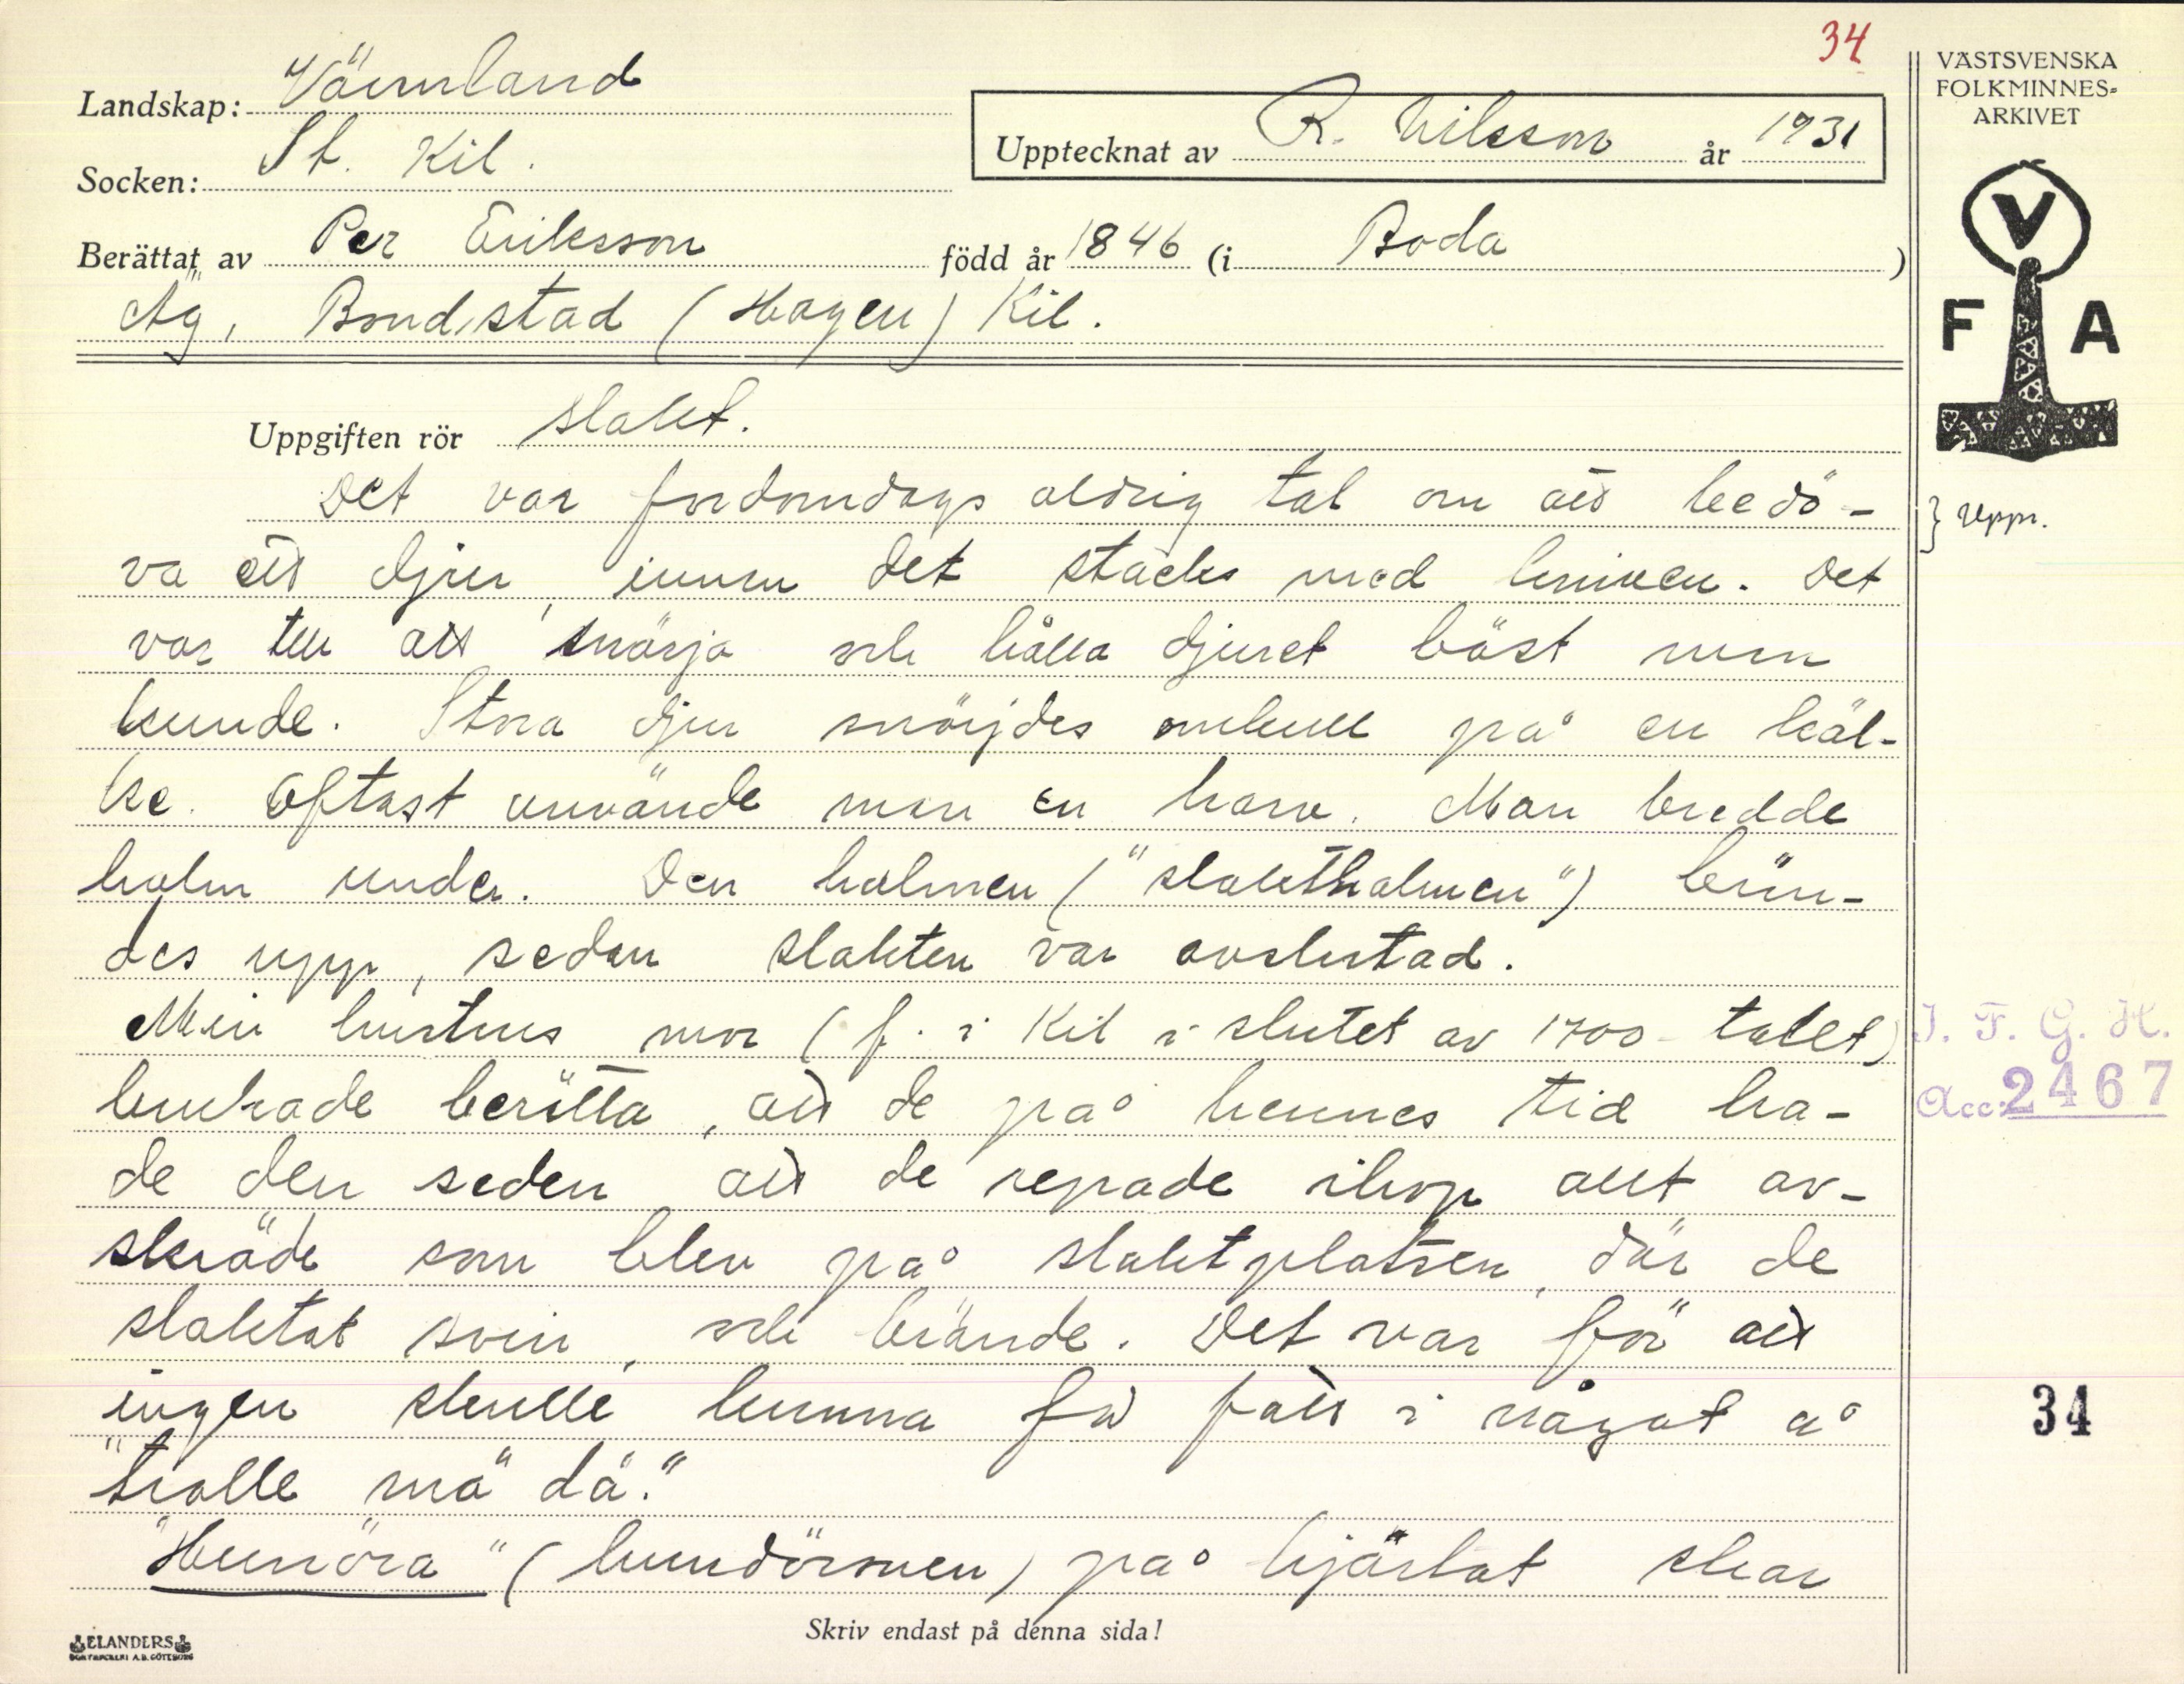 34
VÄSTSVENSKA
FOLKMINNES-
ARKIVET
Landskap: Värmland
Upptecknat av R. Nilsson år 1931
Socken: St. Kil.
Berättat av Per Eriksson född år 1846 (i Boda)
Äg, Bondstad (Hagen) Kil.
V
F A
Uppgiften rör slakt.
Det var fordomdags aldrig tal om att bedö-
} Uppr.
va ett djur, innan det stacks med kniven. Det
var till att snärja och hålla djuret bäst man
kunde. Stora djur snärjdes omkull på en käl-
ke. Oftast använde man en harv. Man bredde
halm under. Den halmen ("slakthalmen") brän-
des upp, sedan slakten var avslutad.
Min hustrus mor (f. i Kil i slutet av 1700-talet)
I. F. G. H.
brukade berätta, att de på hennes tid ha-
Acc. 2467
de den seden att de repade ihop allt av-
skräde som blev på slaktplatsen, där de
slaktat svin, och brände. Det var för att
ingen skulle kunna få fatt i något å
34
"trolle mä dä."
"Hunöra" (hundöronen) på hjärtat skar
Skriv endast på denna sida!
ELANDERS
BOKTRYCKERI A.B. GÖTEBORG